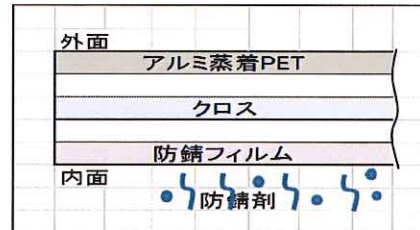 外面
アルミ蒸着PET
クロス
防錆フィルム
内面
防錆剤